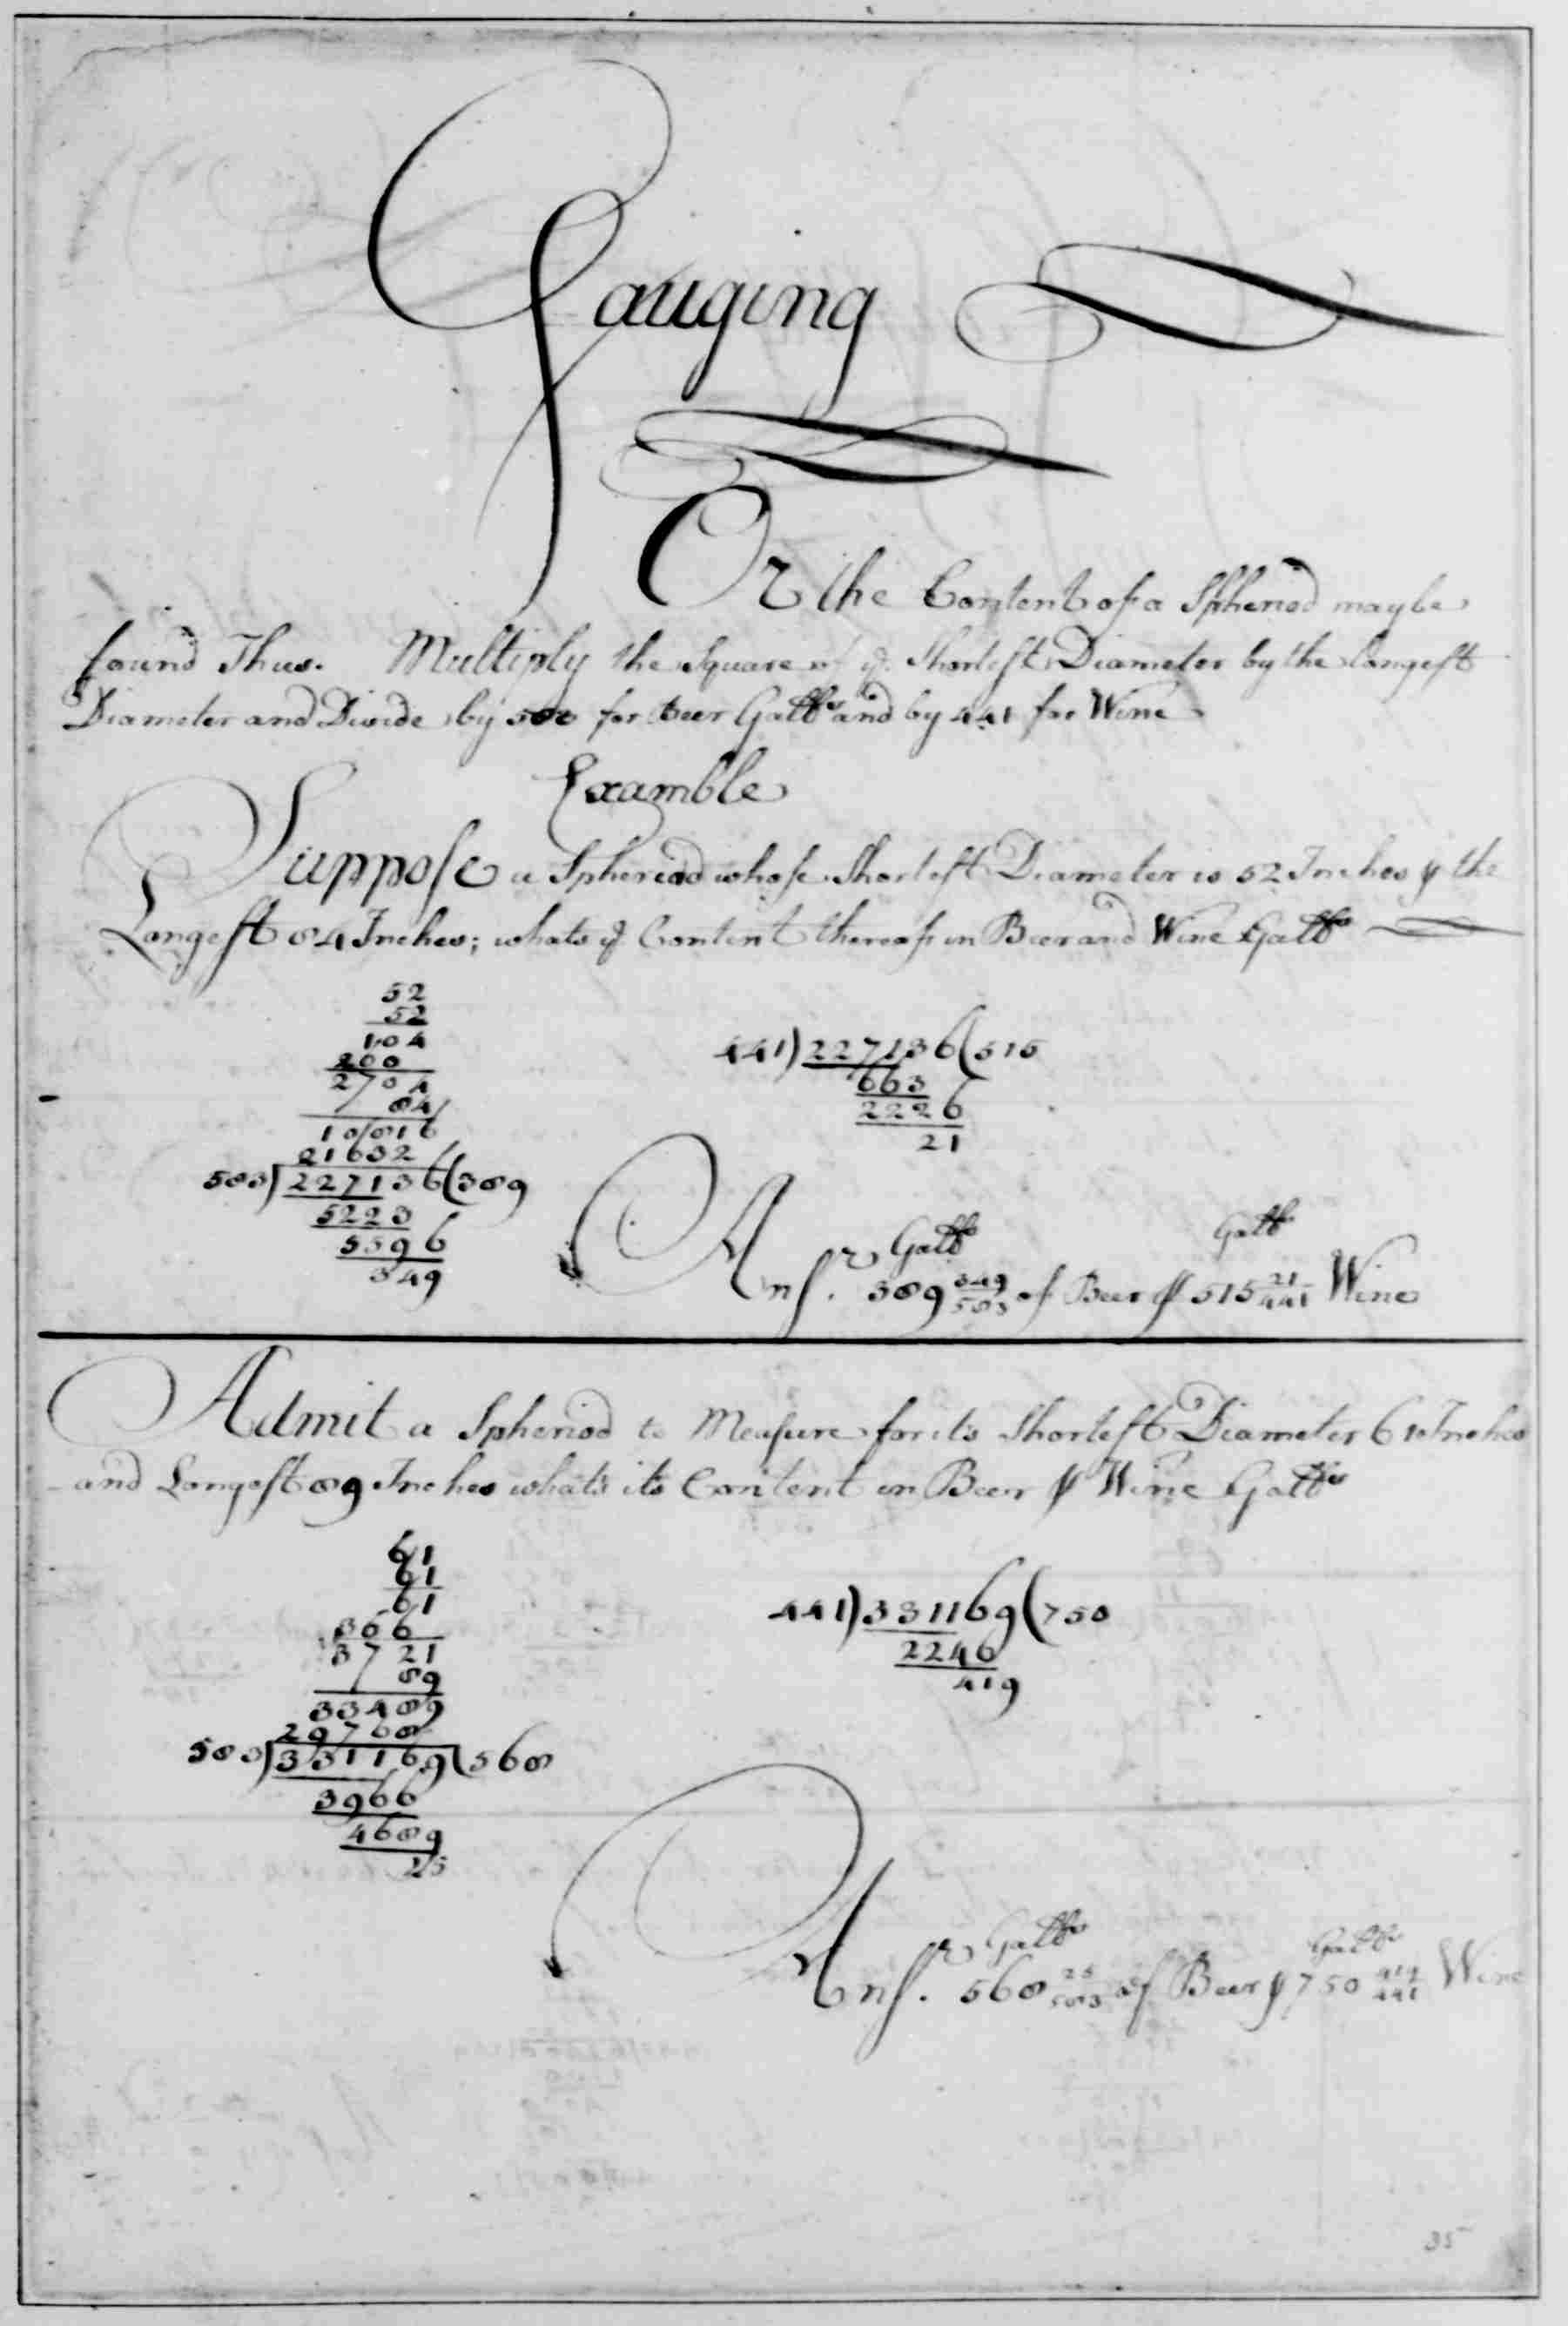 Gauging
Or the Content of a Spheriod may be
found Thus. Multiply the Square of ye. Shortest Diameter by the longest
Diameter and Divide by 583 for Beer Galls and by 441 for Wine
Examble
Suppose a Spheriod whose Shortest Diameter is 52 Inches & the
Longest 84 Inches; whats ye Content thereof in Beer and Wine Galls
52
52
104
260
2704
84
10816
21632
583) 227136 (389
5223
5596
349
441) 227136 (515
663
2226
21
Galls Galls
Ansr. 389 349/583 of Beer & 515 21/441 Wine
Admit a Spheriod to Measure for its Shortest Diameter 61 Inches
and Longest 89 Inches what's its Content in Beer & Wine Galls
61
61
61
366
3721
89
33489
29768
583) 331169 (568
3966
4689
25
441) 331169 (750
2246
419
Galls Galls
Ansr. 568 25/583 of Beer & 750 419/441 Wine
35